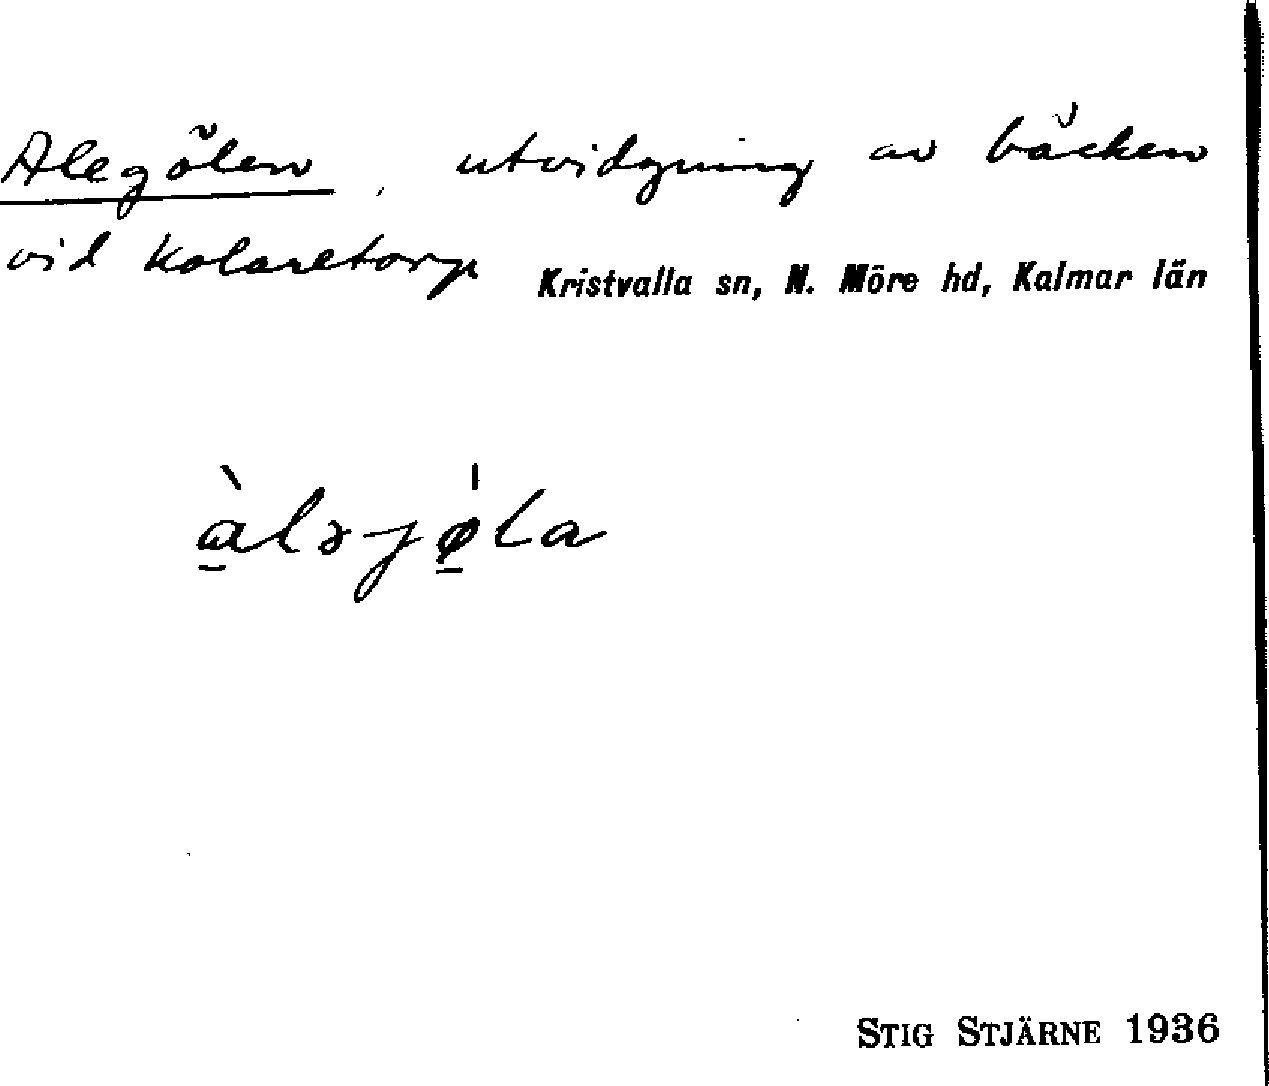 Alegölen, utvidgning av bäcken
vid Kolaretorp Kristvalla sn, N. Möre hd, Kalmar län
à̱ləjǿ̱la
STIG STJÄRNE 1936